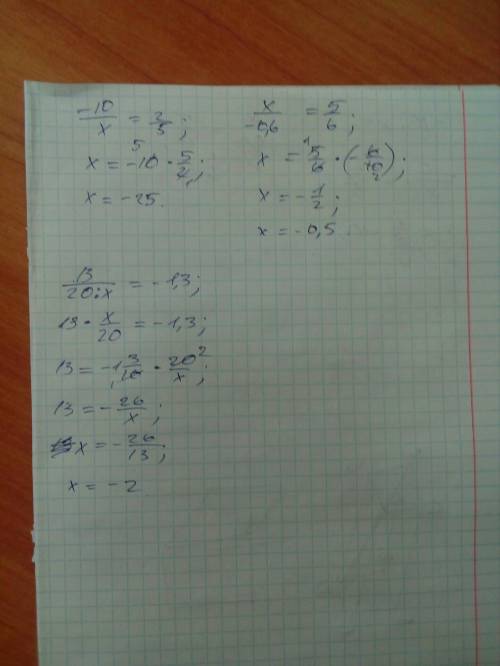 -10/x = 2/5;
x = -10 · 5/2;
x = -25.
x/-0,6 = 5/6;
x = 5/6 · (-6/10);
x = -1/2;
x = -0,5.
13/20:x = -1,3;
13 · x/20 = -1,3;
13 = -1 3/10 · 20/x;
13 = -26/x;
x = -26/13;
x = -2